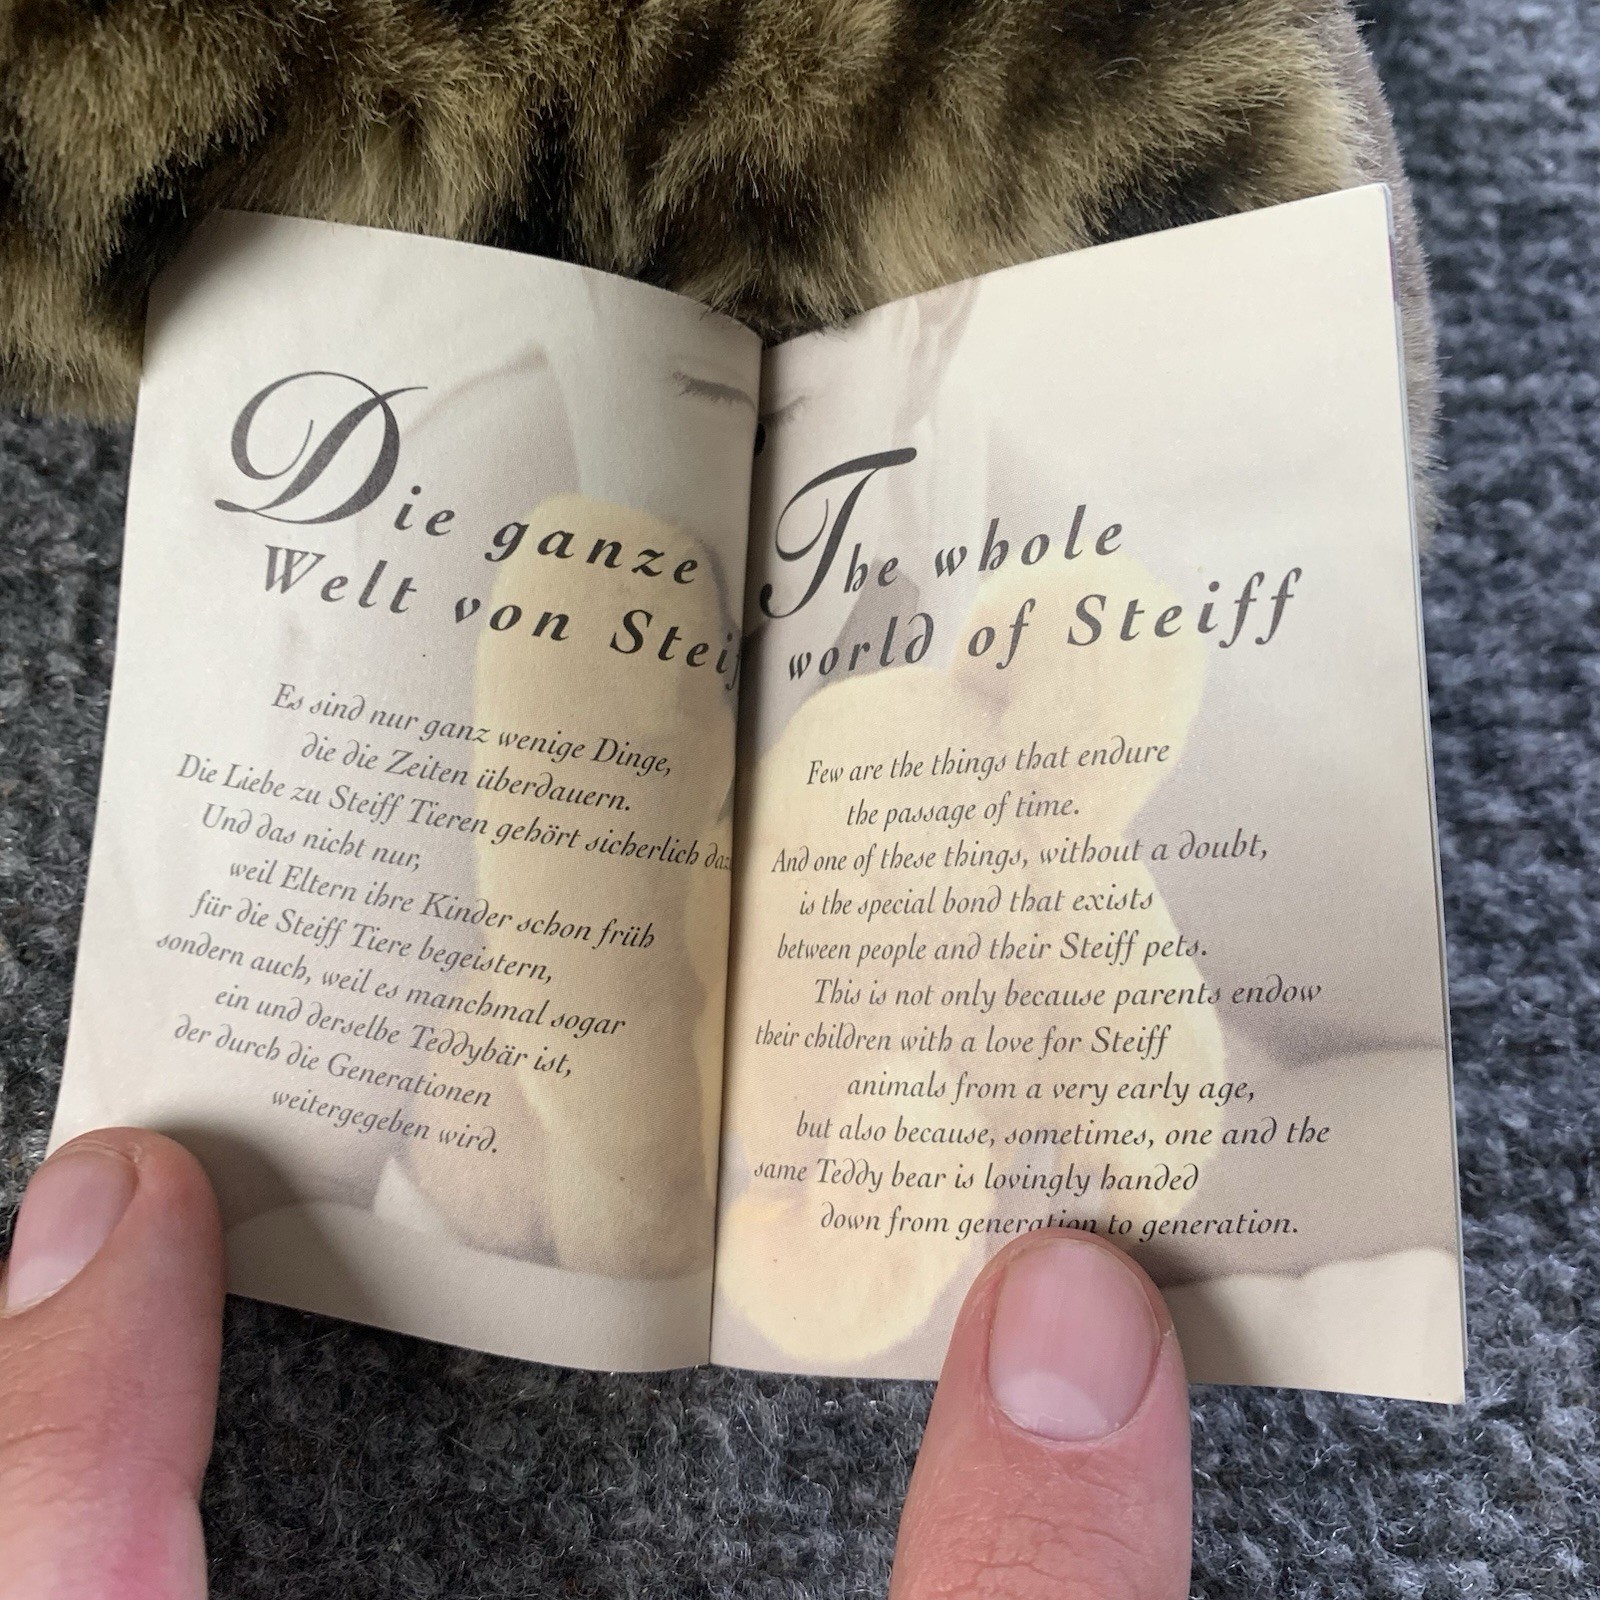 Die ganze
Welt von Steiff
Es sind nur ganz wenige Dinge,
die die Zeiten überdauern.
Die Liebe zu Steiff Tieren gehört sicherlich
Und das nicht nur,
weil Eltern ihre Kinder schon früh
für die Steiff Tiere begeistern,
sondern auch, weil es manchmal sogar
ein und derselbe Teddybär ist,
der durch die Generationen
weitergegeben wird.
The whole
world of Steiff
Few are the things that endure
the passage of time.
And one of these things, without a doubt,
is the special bond that exists
between people and their Steiff pets.
This is not only because parents endow
their children with a love for Steiff
animals from a very early age,
but also because, sometimes, one and the
same Teddy bear is lovingly handed
down from generation to generation.